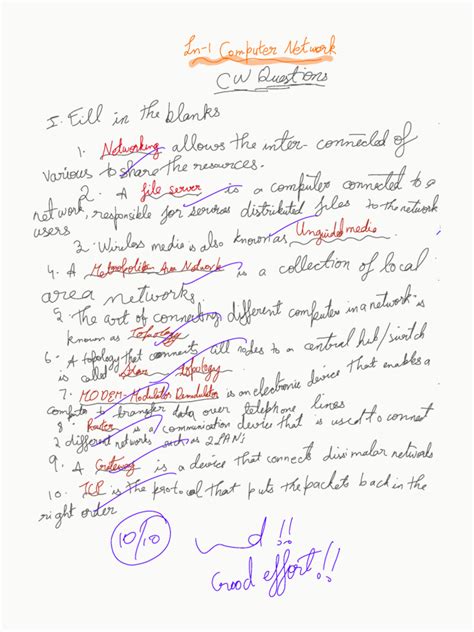 Ln-1 Computer Network
CW Questions
I. Fill in the blanks
1. Networking allows the inter-connected of
various to share the resources.
2. A file server is a computer connected to a
network, responsible for services distributed files to the network
users
3. Wireless media is also known as Unguided media
4. A Metropolitan Area Network is a collection of local
area networks
5. The art of connecting different computer in a network is
known as Topology
6. A topology that connects all nodes to a central hub/switch
is called Star topology
7. MODEM-Modulator Demdulator is an electronic device that enables a
computer to transfer data over telephone lines
8. Router is a communication device that is used to connect
2 different networks such as 2 LANs
9. A Gateway is a device that connects dissimalar networks
10. TCP is the protocal that puts the packets back in the
right order
10/10
Good effort!!